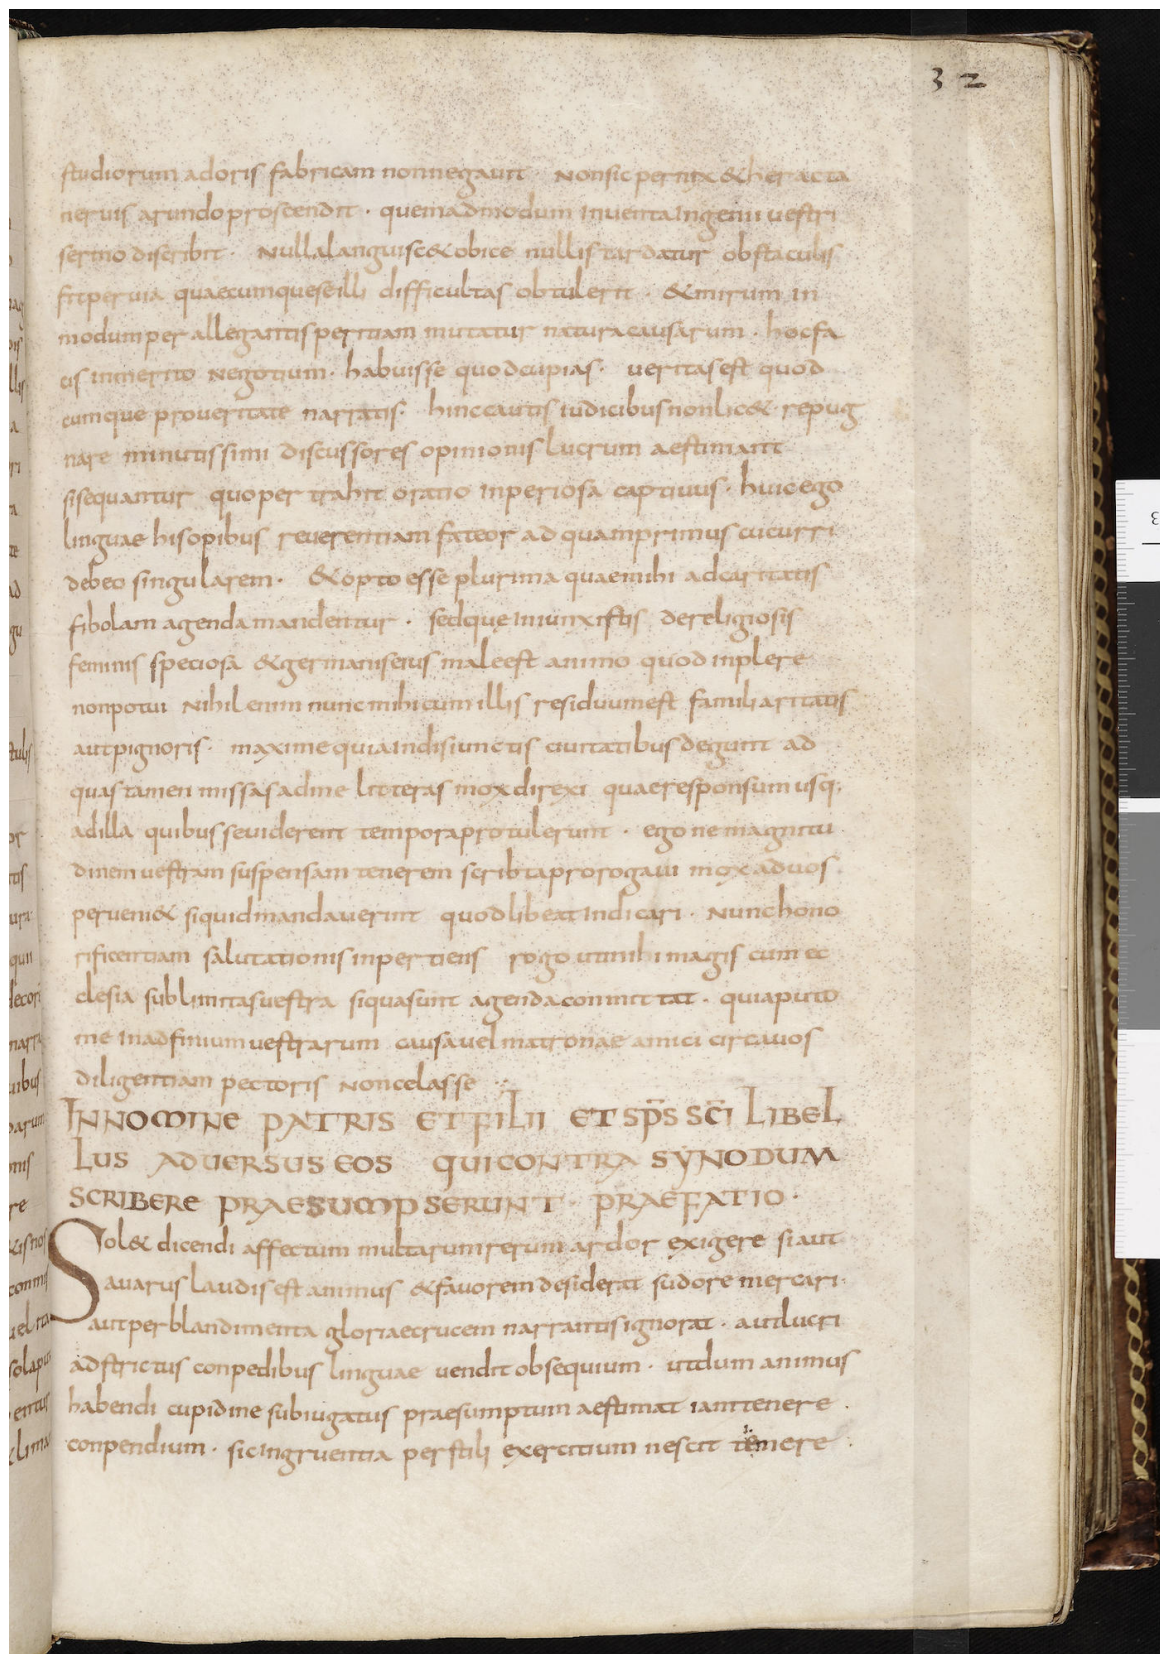 32
studiorum adoris fabricam nonnegauit Nonsic pernix & heracta
neruis arundo proscendit · quemadmodum inuentaingenii uestri
sermo discribit · Nullalanguisc& obice nullis tardatur obstaculis
fit peruia quaecumqueseilli difficultas obtulerit · & mirum in
modumper allegantisperitiam mutatur naturacausarum · hocfa
tis inmerito Negotium · habuisse quodcupias · ueritasest quod
cumque proueritate narratis · hinccautis iudicibusnonlic& repug
nare minutissimi discussores opinionis lucrum aestimant
sisequantur quopertrahit oratio inperiosa captiuus · huicego
linguae hisopibus reuerentiam fateor adquamprimus cucurri
debeo singularem · & opto esse plurima quaemihi adcaritatis
fibolam agenda mandentur · sedque iniunxistis dereligiosis
feminis speciosa & germaniseius maleest animo quod inplere
nonpotui Nihil enim nunc mihi cum illis residuumest familiaritatis
autpignoris · maxime quiaindisiunctis ciuitatibusdegunt ad
quas tamen missasadme litteras moxdirexi quaeresponsum usq;
adilla quibusseuiderent temporaprotulerunt · ego ne magnitu
dinem uestram suspensam tenerem scribtaprorogaui mox aduos
perueni& siquidmandauerint quodlibeatindicari · Nunchono
rificentiam salutationisinpertiens rogo utmihi magis cum ec
clesia sublimitasuestra siquasunt agendacommittat · quiaputo
me inadfiniumuestrarum causauelmatronae amici circauos
diligentiam pectoris Noncelasse
INNOMINE PATRIS ETFILII ET SPS SCI LIBEL
LUS ADUERSUS EOS QUICONTRA SYNODUM
SCRIBERE PRAESUMPSERUNT · PRAEFATIO ·
Sol& dicendi affectum multarumrerum ardor exigere siaut
auarus laudisestanimus & fauoremdesiderat sudore mercari
autperblandimenta gloriaecrucem narrantisignorat · autlucri
adstrictus conpedibus linguae uendit obsequium · utdum animus
habendi cupidine subiugatus praesumptum aestimat iamtenere ·
conpendium · sicingruentia perstili exercitium nescit timere ·